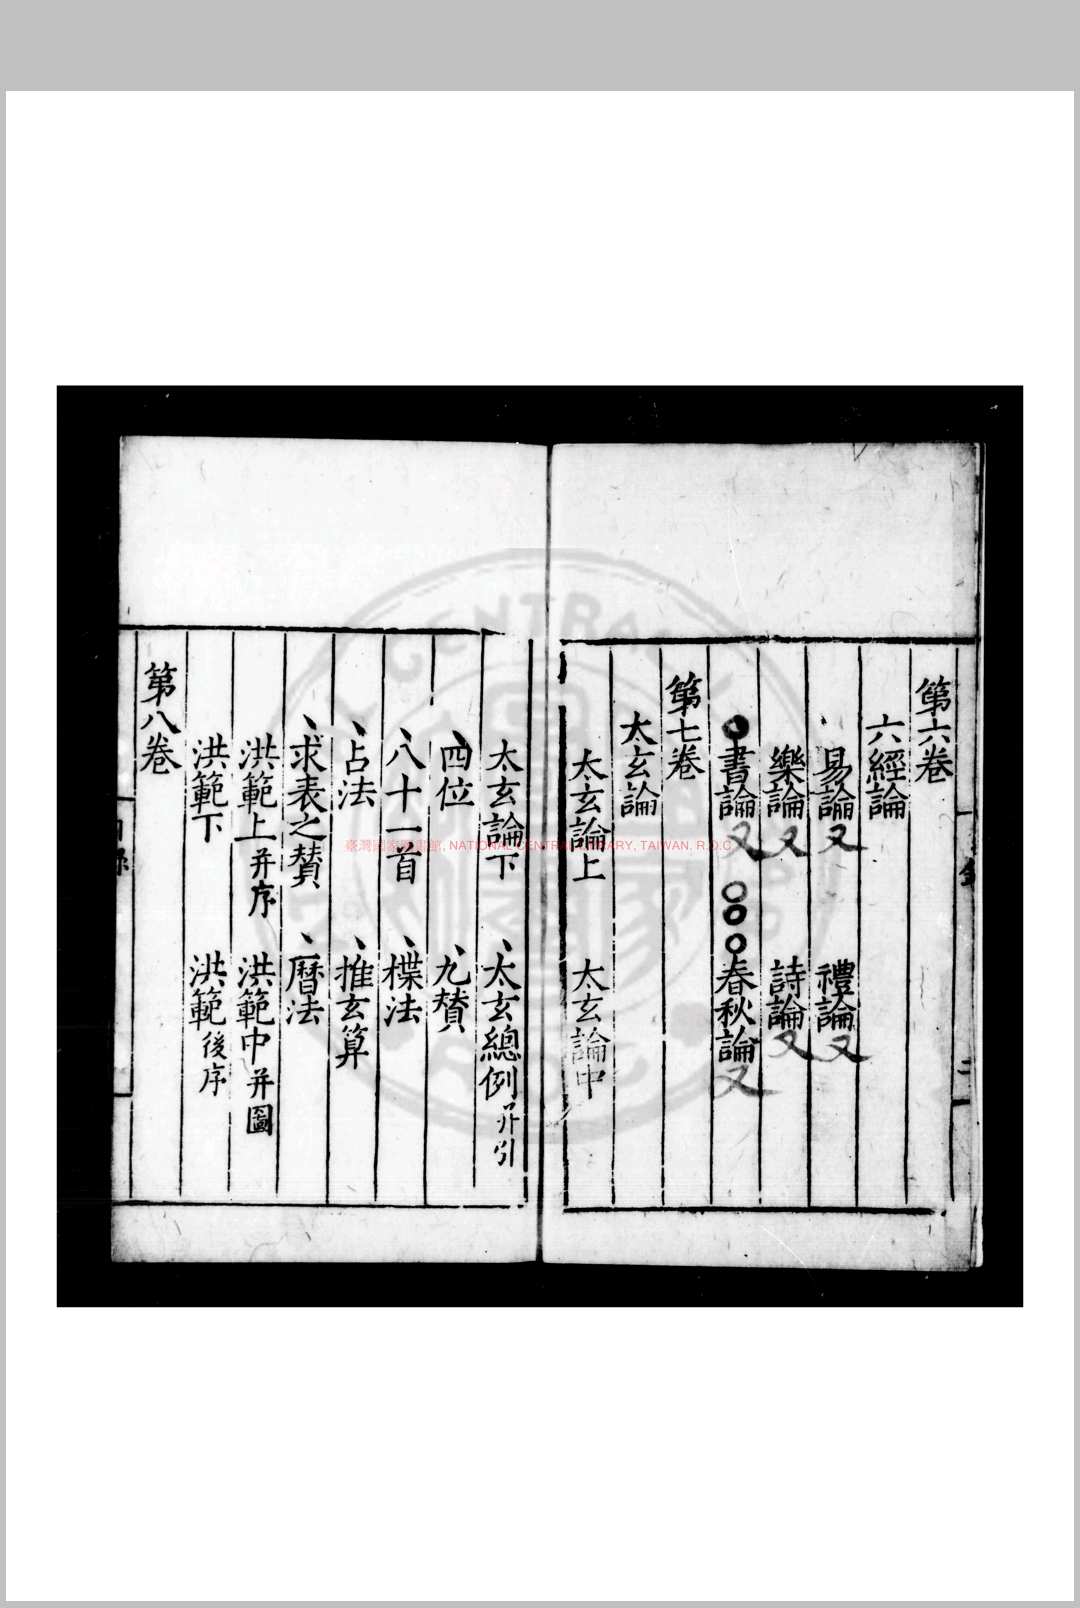 第六卷
六經論
易論又 禮論又
樂論又 詩論又
書論又 春秋論又
第七卷
太玄論
太玄論上 太玄論中
太玄論下 太玄總例并引
四位 九賛
八十一首 楪法
占法 推玄算
求表之賛 曆法
洪範上并序 洪範中并圖
洪範下 洪範後序
第八卷
臺灣國家圖書館, NATIONAL CENTRAL LIBRARY, TAIWAN. R.O.C.